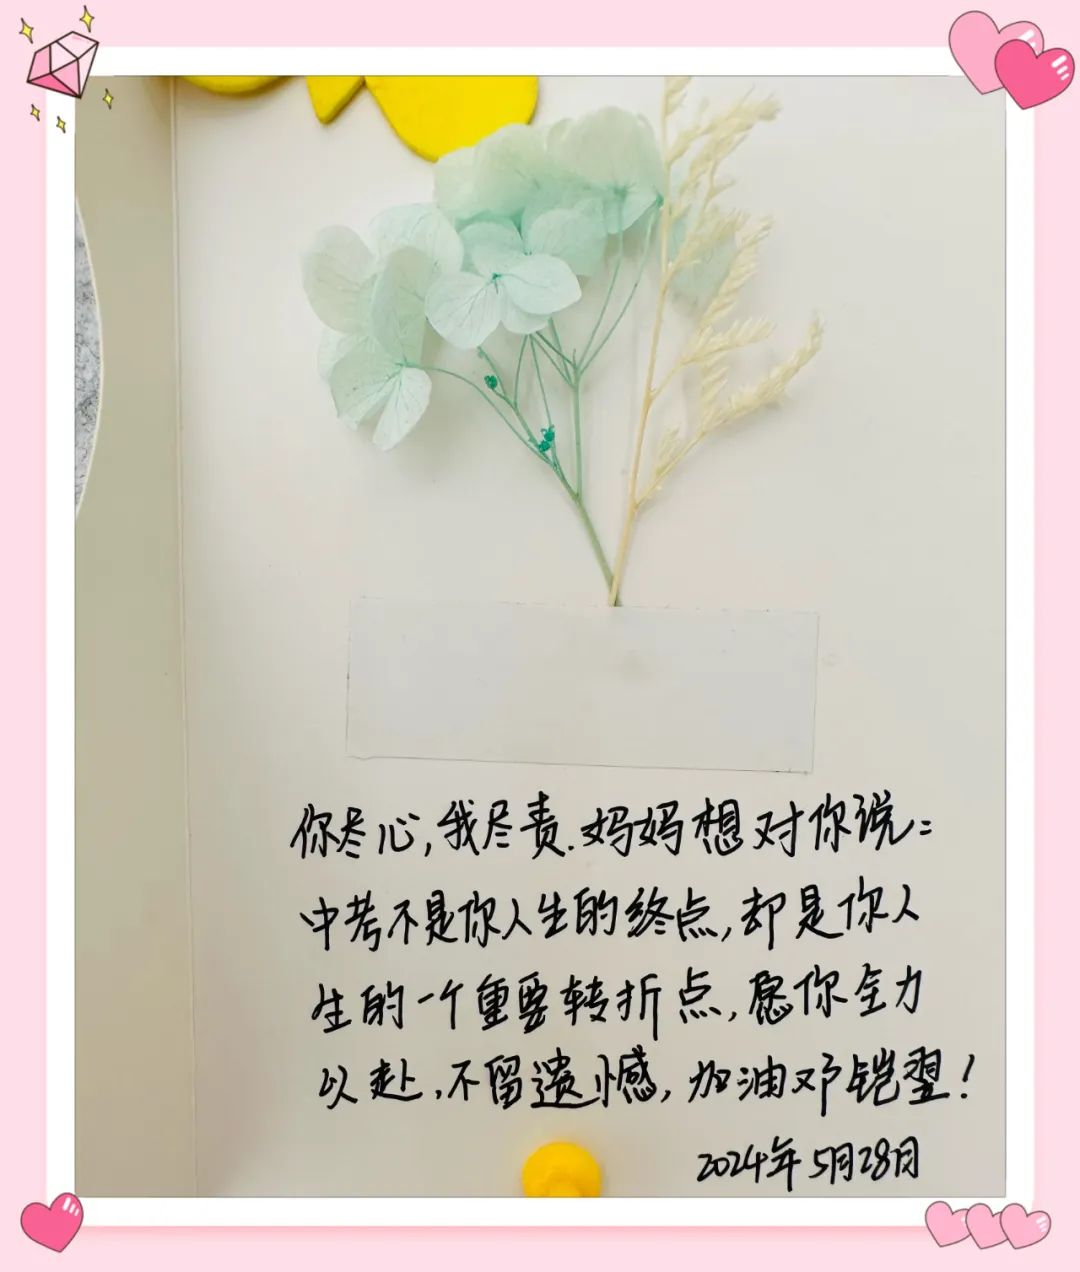 你尽心,我尽责.妈妈想对你说:
中考不是你人生的终点,却是你人
生的一个重要转折点,愿你全力
以赴,不留遗憾,加油邓铠翌!
2024年5月28日